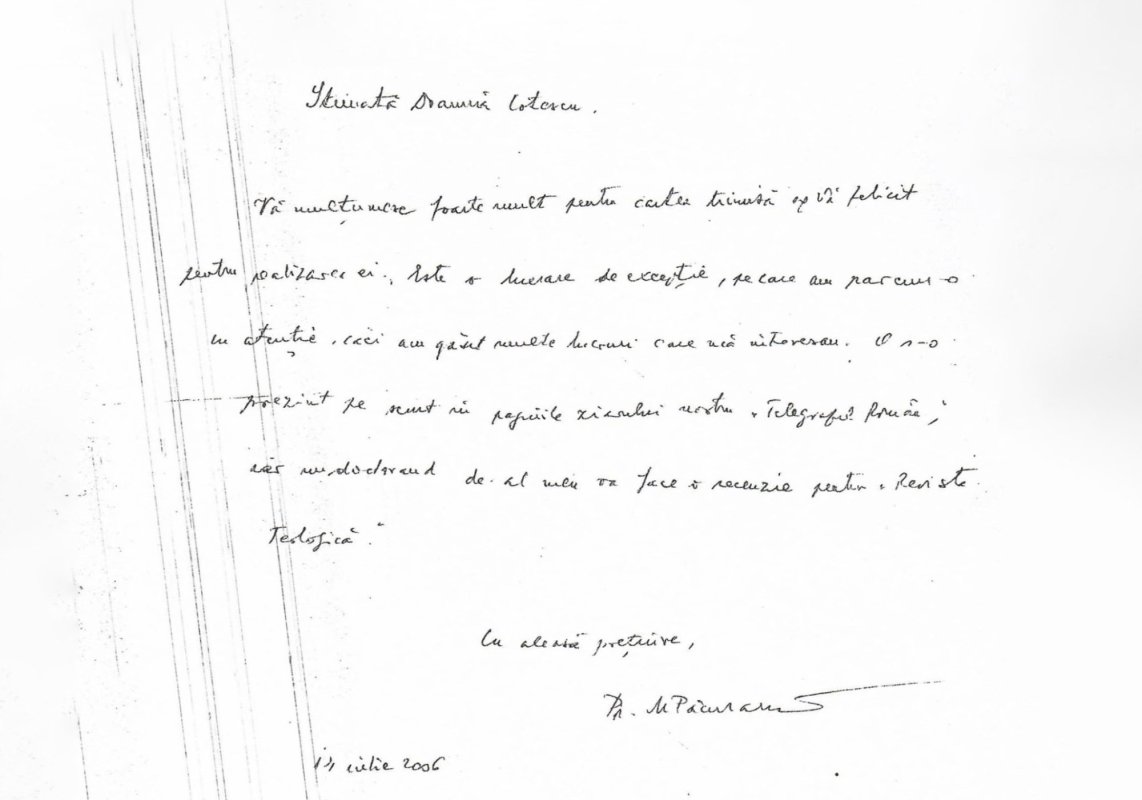 Stimată Doamnă Cotescu.
Vă mulțumesc foarte mult pentru cartea trimisă și Vă felicit
pentru realizarea ei. Este o lucrare de excepție, pe care am parcurs-o
cu atenție, căci am găsit multe lucruri care mă interesau. O s-o
prezint pe scurt în paginile ziarului nostru „Telegraful Român",
iar un doctorand de-al meu va face o recenzie pentru „Revista
Teologică."
Cu aleasă prețuire,
Pr. M Păcurariu
iulie 2006